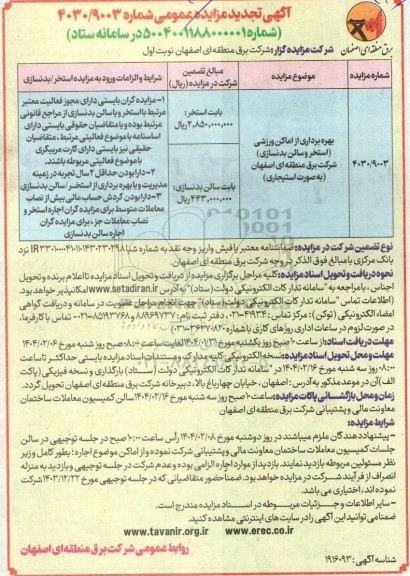 آگهی تجدید مزایده عمومی شماره ۴۰۳۰/۹۰۰۳
(شماره ۵۰۰۴۰۰۱۱۸۸۰۰۰۰۰۱ در سامانه ستاد)
برق منطقه‌ای اصفهان
شرکت مزایده گزار: شرکت برق منطقه‌ای اصفهان نوبت اول
شماره مزایده
موضوع مزایده
مبالغ تضمین شرکت در مزایده (ریال)
شرایط و الزامات ورود به مزایده استخر/بدنسازی
۴۰۳۰/۹۰۰۳
بهره برداری از اماکن ورزشی
(استخر و سالن بدنسازی)
شرکت برق منطقه‌ای اصفهان
(به صورت استیجاری)
بابت استخر:
۲،۸۵۰،۰۰۰،۰۰۰ ریال
بابت سالن بدنسازی:
۴۴۳،۰۰۰،۰۰۰ ریال
۱- مزایده گران بایستی دارای مجوز فعالیت معتبر
مرتبط با استخر و یا سالن بدنسازی از مراجع قانونی
مرتبط بوده و یا متقاضیان حقوقی بایستی دارای
اساسنامه با موضوع فعالیتی مرتبط، متقاضیان
حقیقی نیز بایستی دارای کارت مربیگری
با موضوع فعالیتی مربوطه باشند.
۲- دارا بودن حداقل ۲ سال تجربه در زمینه
مدیریت و یا بهره برداری از استخر/سالن بدنسازی
۳- دارا بودن گردش حساب مالی بیش از نصاب
معاملات متوسط برای مزایده گران اجاره استخر و
نصاب معاملات جزء، برای مزایده گران
اجاره سالن بدنسازی
نوع تضمین شرکت در مزایده: ضمانتنامه معتبر یا فیش واریز وجه نقد به شماره شبا نزد
بانک مرکزی با مبالغ فوق الذکر در وجه شرکت برق منطقه‌ای اصفهان.
نحوه دریافت و تحویل اسناد مزایده: کلیه مراحل برگزاری مزایده از دریافت و تحویل اسناد مزایده تا اعلام برنده و تحویل
اجناس، با مراجعه به "سامانه تدارکات الکترونیکی دولت (ستاد)" به آدرس www.setadiran.ir امکانپذیر خواهد بود.
(اطلاعات تماس "سامانه تدارکات الکترونیکی دولت (ستاد)" جهت انجام مراحل عضویت در سامانه و دریافت گواهی
امضاء الکترونیکی (توکن): مرکز تماس: ۴۱۹۳۴-۰۲۱، دفتر ثبت نام: ۸۸۹۶۹۷۳۷ و ۸۵۱۹۳۷۶۸-۰۲۱)
در صورت لزوم در ساعات اداری روزهای کاری با شماره تماس با کارفرما،
مهلت دریافت اسناد: از ساعت ۱۰ صبح روز یکشنبه مورخ لغایت ساعت ۰۸:۰۰ صبح روز شنبه مورخ ۱۴۰۴/۰۲/۰۶
مهلت و محل تحویل اسناد مزایده: نسخه الکترونیکی کلیه مدارک و مستندات اسناد مزایده بایستی حداکثر تا ساعت
۰۸:۰۰ روز سه شنبه مورخ ۱۴۰۴/۰۲/۱۶ در "سامانه تدارکات الکترونیکی دولت (ستاد)" بارگذاری و نسخه فیزیکی (پاکت
الف) آن در موعد مذکور به آدرس: اصفهان، خیابان چهارباغ بالا، دبیرخانه شرکت برق منطقه‌ای اصفهان تحویل گردد.
زمان و محل بازگشایی پاکات مزایده: ساعت ۱۰ صبح روز سه شنبه مورخ ۱۴۰۴/۰۲/۱۶ سالن کمیسیون معاملات ساختمان
معاونت مالی و پشتیبانی شرکت برق منطقه‌ای اصفهان
شرایط مزایده:
- پیشنهاد دهندگان ملزم میباشند در روز دوشنبه مورخ ۱۴۰۴/۰۲/۰۸ رأس ساعت ۱۰:۰۰ صبح در جلسه توجیهی در سالن
جلسات کمیسیون معاملات ساختمان معاونت مالی و پشتیبانی شرکت نموده و از اماکن موضوع اجاره، بطور کامل و زیر
نظر مسئولین مربوطه بازدید نمایند. بازدید از موارد اجاره الزامی بوده و عدم شرکت در جلسه توجیهی و بازدید به منزله
انصراف از فرآیند شرکت در مزایده خواهد بود. ضمناً حضور متقاضیانی که در جلسه توجیهی مورخ ۱۴۰۳/۱۲/۲۲ شرکت
نموده اند، اختیاری می باشد.
- سایر اطلاعات و جزئیات مربوطه در اسناد مزایده مندرج است.
ضمناً می توانید این آگهی را در سایت های اینترنتی مشاهده کنید.
www.tavanir.org.ir www.erec.co.ir
شناسه آگهی: ۱۹۱۶۰۹۳
روابط عمومی شرکت برق منطقه‌ای اصفهان